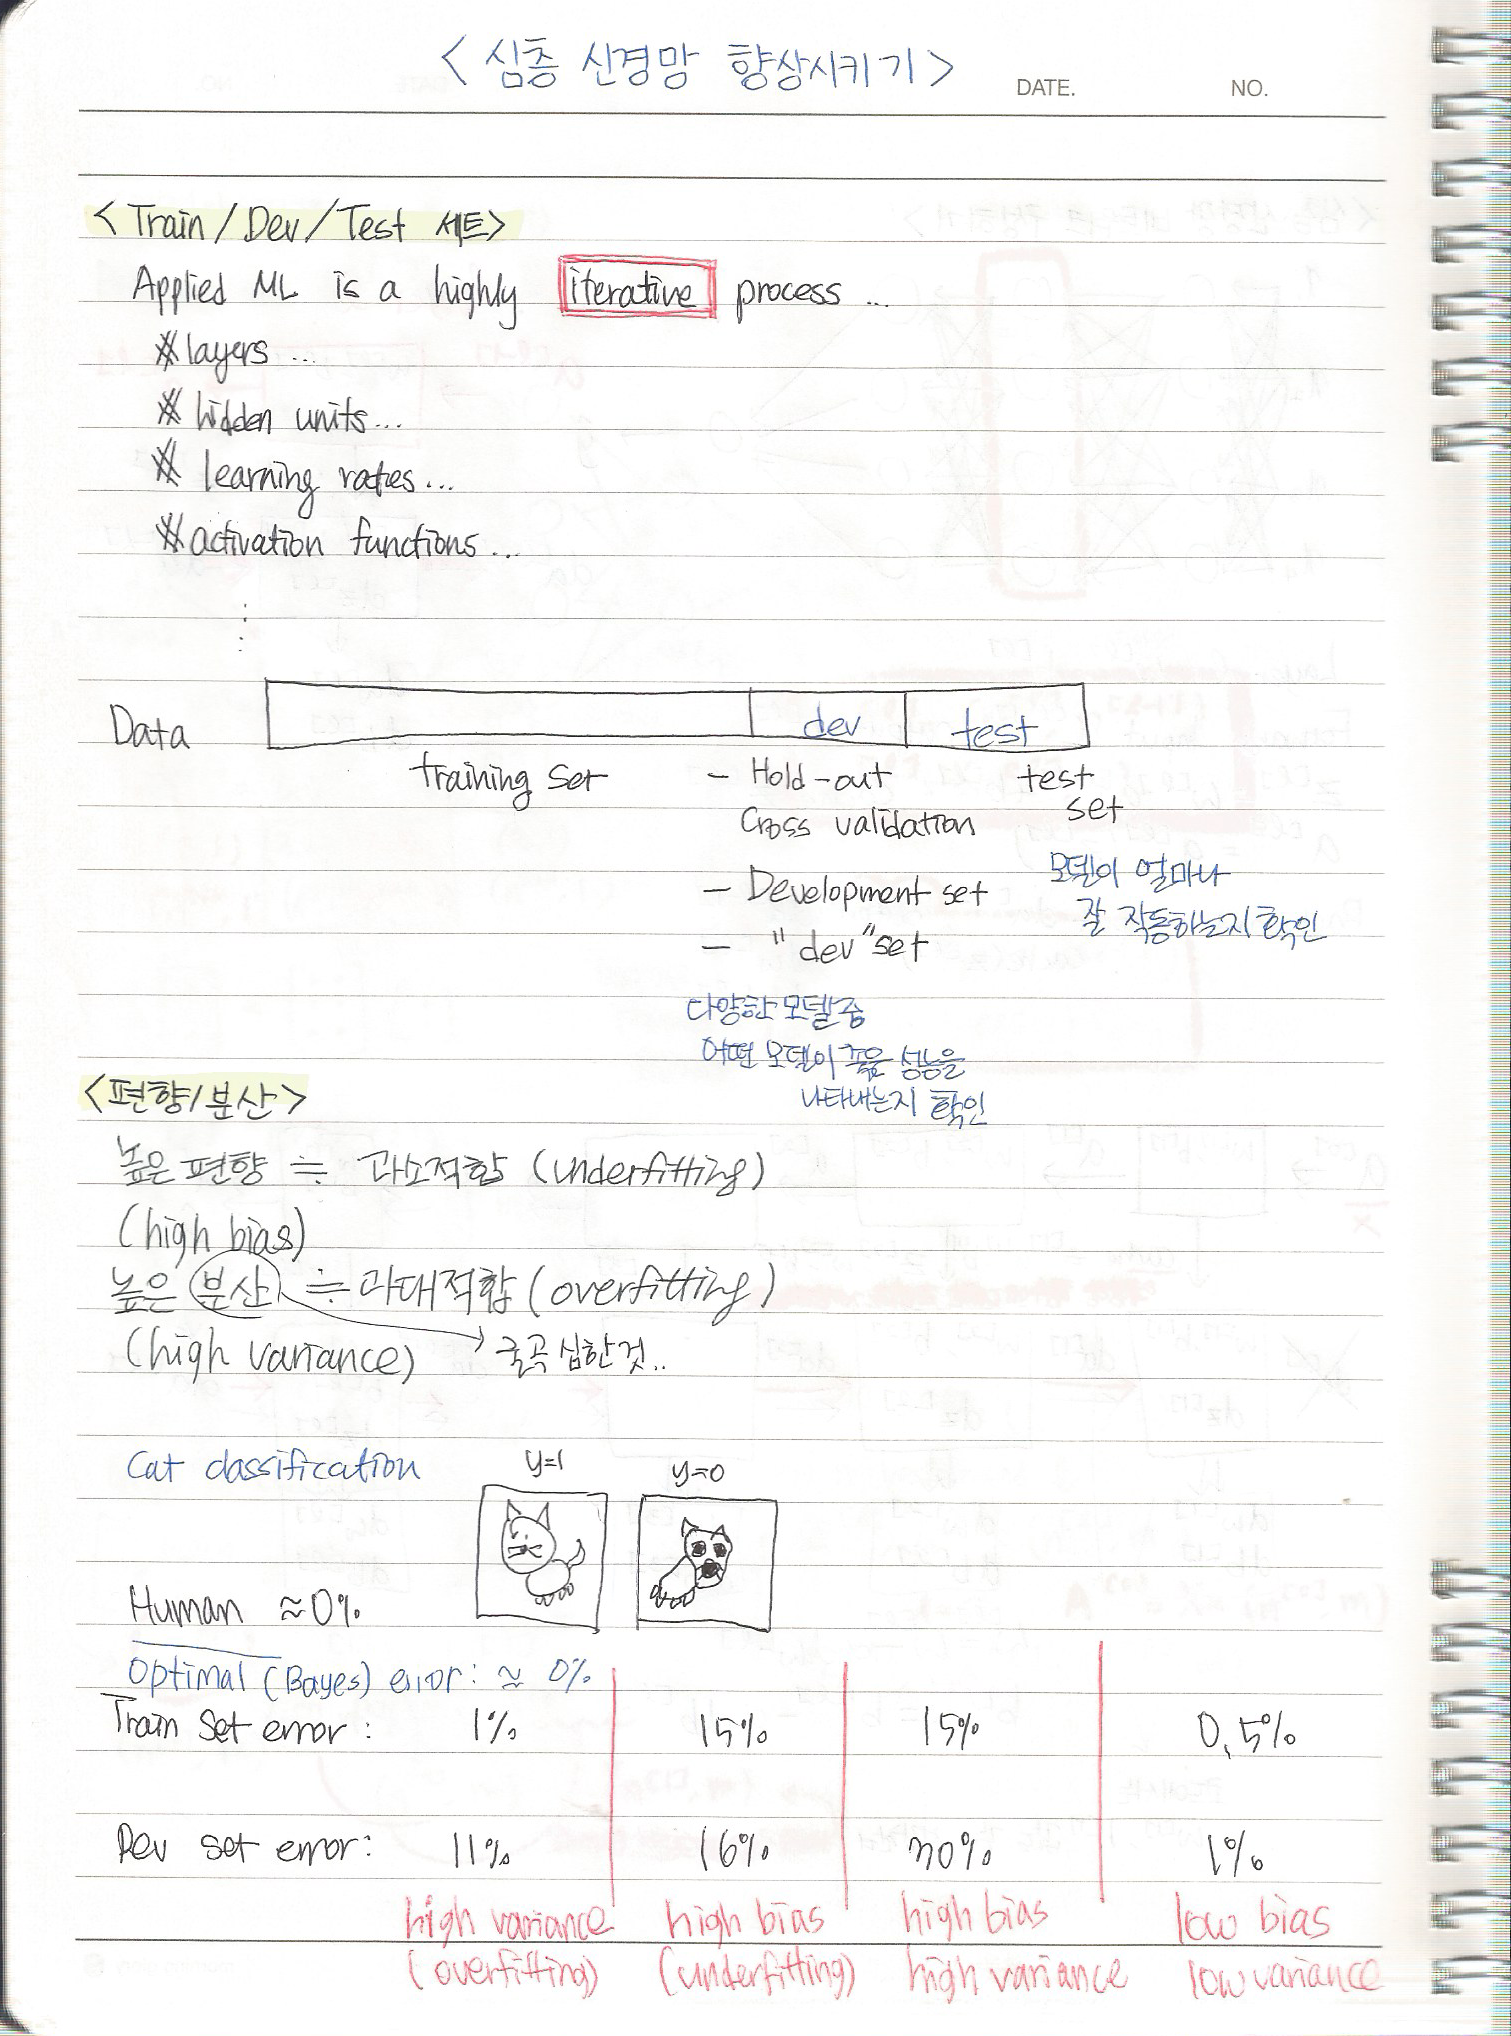 < 심층 신경망 향상시키기 >
DATE. NO.
< Train / Dev / Test 세트>
Applied ML is a highly iterative process ...
# layers ...
# hidden units...
# learning rates...
# activation functions...
Data dev test
training set - Hold-out test
Cross validation set
- Development set 모델이 얼마나
잘 작동하는지 확인
- "dev" set
다양한 모델 중
어떤 모델이 좋은 성능을
나타내는지 확인
<편향/분산>
높은 편향 ≒ 과소적합 (underfitting)
(high bias)
높은 분산 ≒ 과대적합 (overfitting)
(high variance) 굴곡 심한것..
Cat classification y=1 y=0
Human ≈0%
Optimal (Bayes) error: ≈ 0%
Train set error: 1% 15% 15% 0.5%
Dev set error: 11% 16% 30% 1%
high variance high bias high bias low bias
(overfitting) (underfitting) high variance low variance